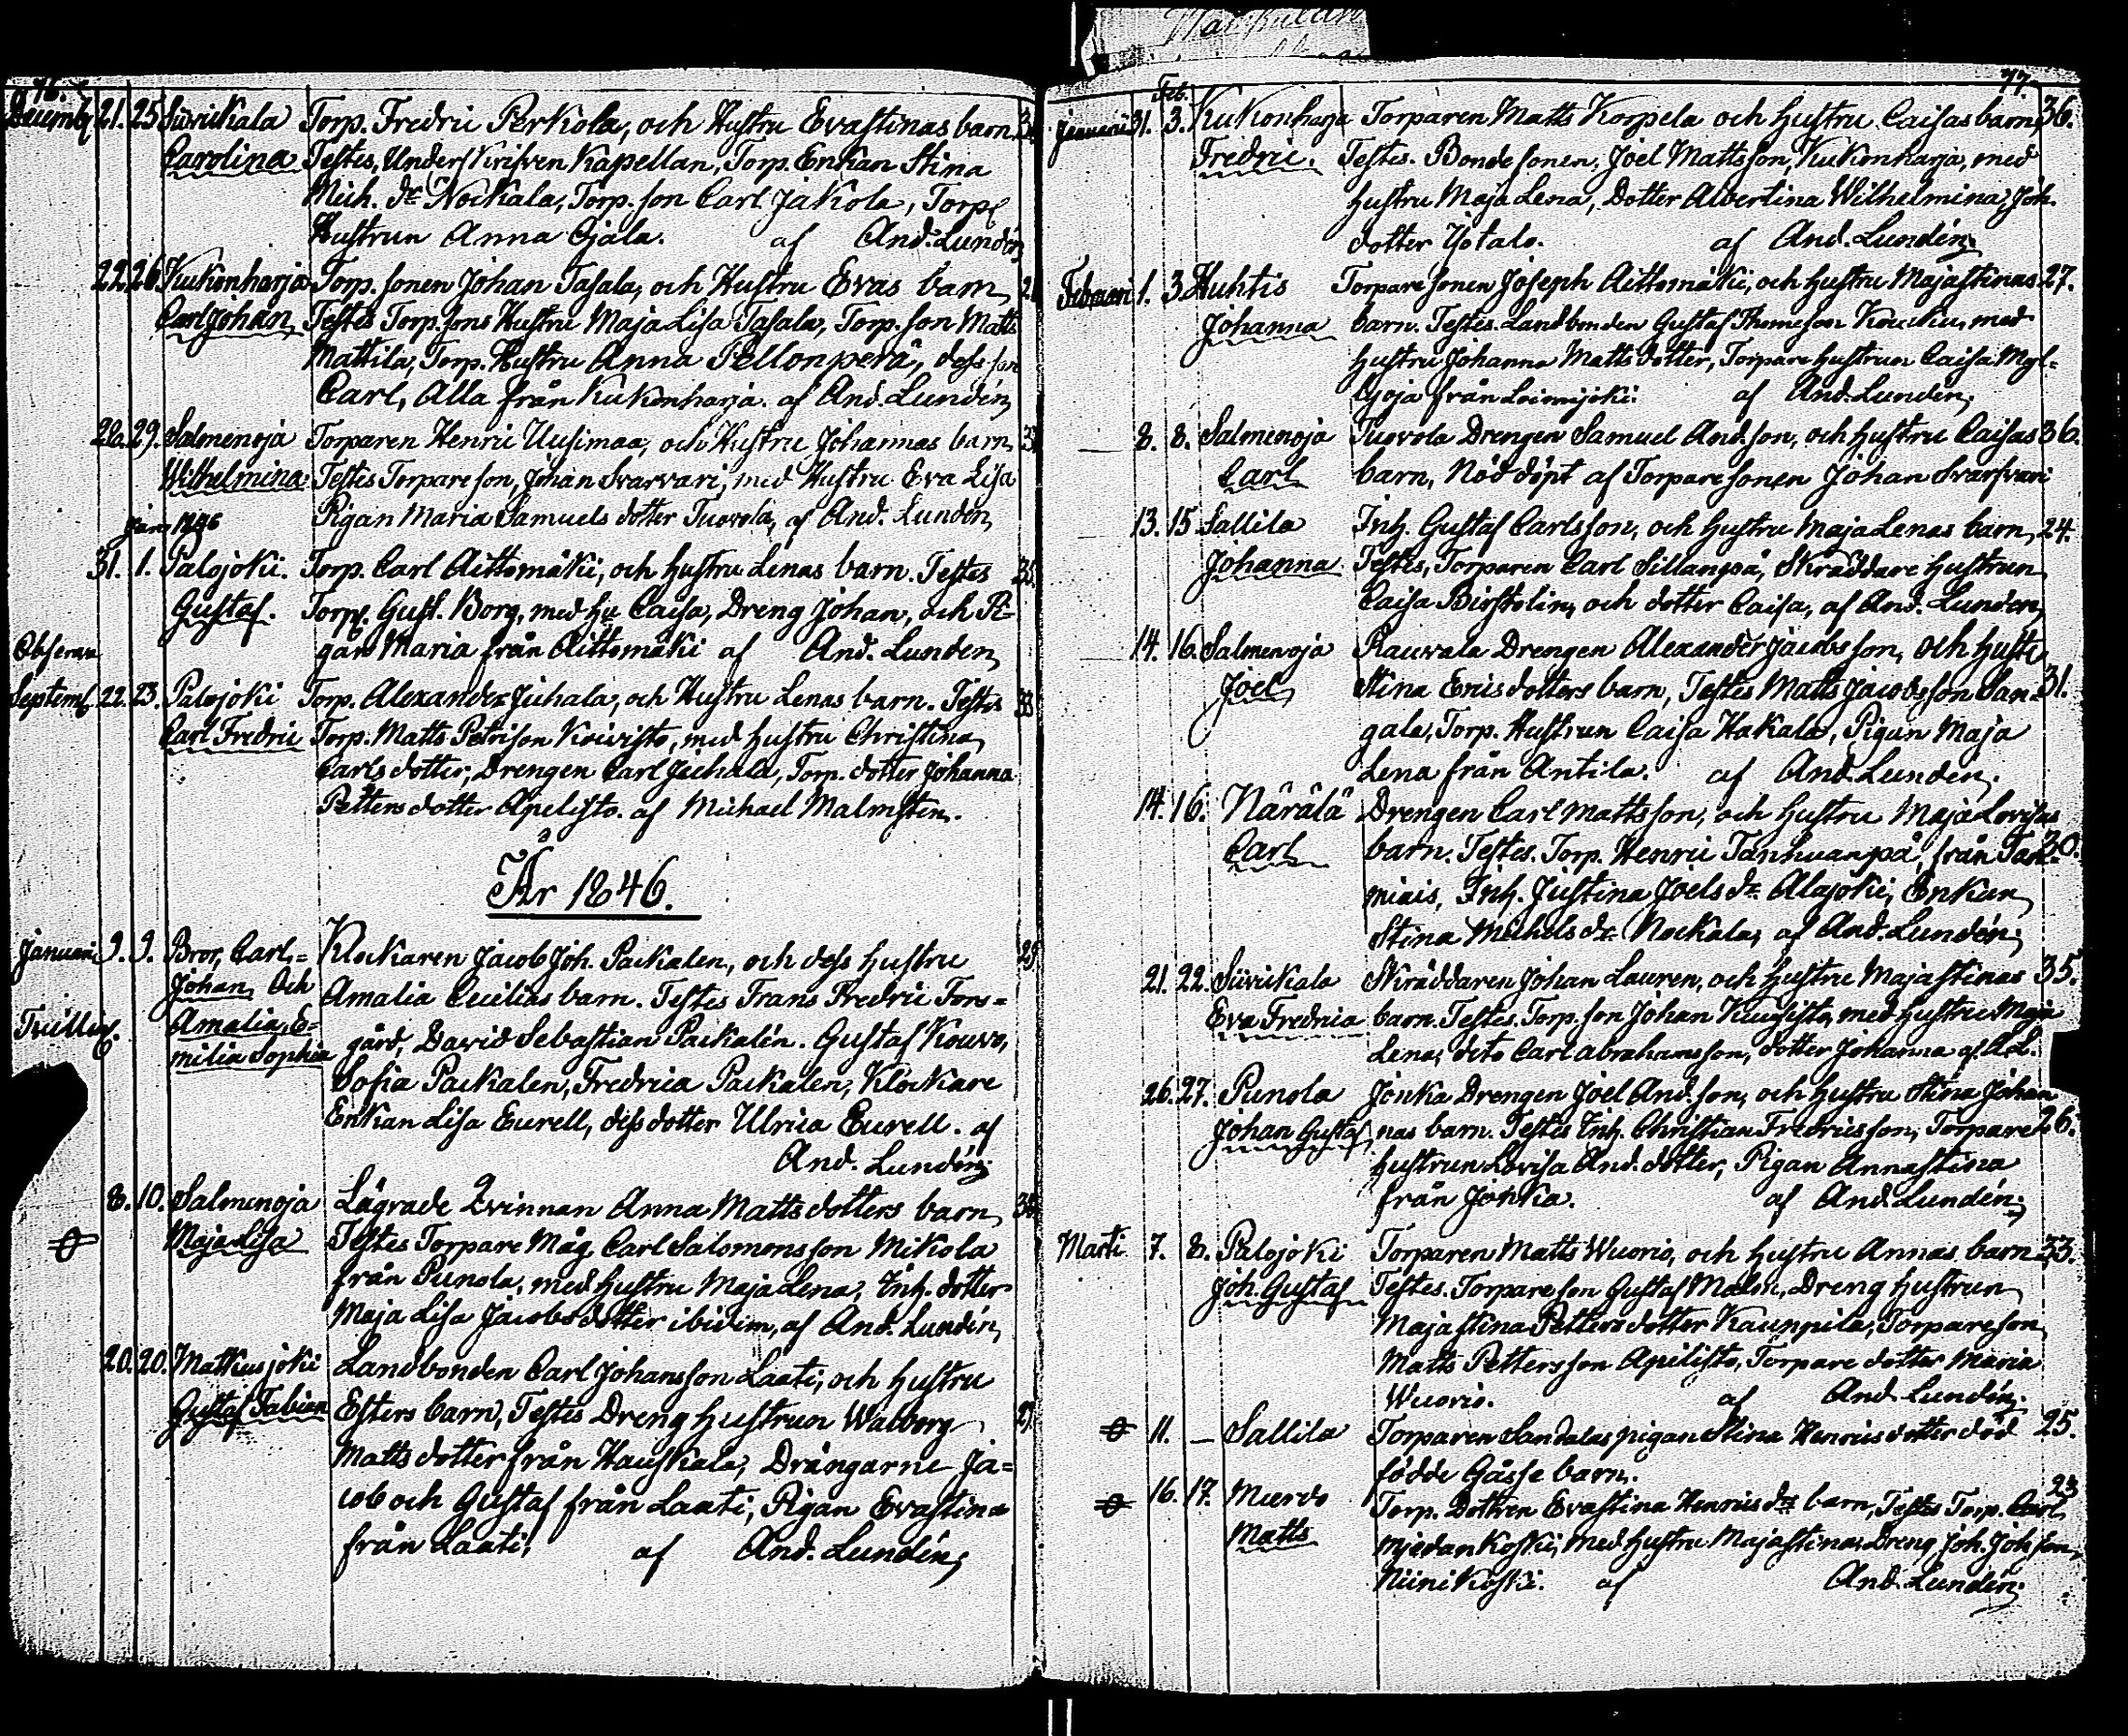 76.
Decemb 21. 25 Siivikkala Torp. Fredric Perkola, och Hustru Evastinas barn
Carolina Testes, Underskrifven Kapellan, Torp. Enkan Stina
Mich. dr Nockala, Torp. son Carl Jakola, Torp.
Hustrun Anna Ojala. af And. Lundén
22. 26. Kukonharja Torp. sonen Johan Tasala, och Hustru Evas barn
Carl Johan Testes Torp. sons Hustru Maja Lisa Tasala, Torp. son Matts
Mattila, Torp. Hustru Anna Pellonperä, dess son
Carl, Alla från Kukonharja. af And. Lundén
22. 29. Salmenoja Torparen Henric Uusimaa, och Hustru Johannas barn
Wilhelmina Testes Torpare son, Johan Svarvari, med Hustru Eva Lisa
Pigan Maria Samuels dotter Tuovola, af And. Lundén
Jan. 1846
31. 1. Palojoki. Torp. Carl Aittomäki, och hustru Lenas barn. Testes 35.
Gustaf. Torp. Gust. Borg, med hu Caisa, Dreng Johan, och Pi-
gan Maria från Aittomäki af And. Lundén
Observ.
Septemb. 22. 23. Palojoki Torp. Alexander Juhala, och Hustru Lenas barn. Testes 33
Carl Fredric Torp. Matts Petrison Koivisto, med hustru Christina
Carls dotter, Drengen Carl Juhala, Torp. dotter Johanna
Petters dotter Apelisto. af Michael Malmsten.
År 1846.
Januari 9. 9. Bror, Carl- Klockaren Jacob Joh. Packalen, och dess hustru
Johan Och Amalia Cecilias barn. Testes Frans Fredric Fors-
Trilling. Amalia, E-
milia Sophia gård, David Sebastian Packalén. Gustaf Kouvo,
Sofia Packalen, Fredrica Packalen, Klockare
Enkan Lisa Eurell, dess dotter Ulrica Eurell. af
And. Lundén
8. 10. Salmenoja Lägrade Qvinnan Anna Matts dotters barn
Maja Lisa Testes Torpare Måg Carl Salomonsson Mikola
från Punola, med hustru Maja Lena, Inh. dotter
Maja Lisa Jacobs dotter ibidem, af And. Lundén
20. 20. Matkusjoki Landbonden Carl Johansson Laati, och hustru
Gustaf Fabian Esters barn, Testes Dreng hustrun Walborg
Matts dotter från Hauskala, Drängarne Ja-
cob och Gustaf från Laati, Pigan Evastina
från Laati, af And. Lundén
77.
Feb.
Januari 31. 3. Kukonharja Torparen Matts Korpela och hustru Caisas barn 36.
Fredric. Testes. Bondesonen Joel Mattsson, Kukonharja, med
hustru Maja Lena, Dotter Albertina Wilhelmina, Joh.
dotter Yötalo. af And. Lundén
Februari 1. 3. Huhtis Torpare sonen Joseph Aittomäki, och hustru Majastinas 27.
Johanna barn. Testes. Landbonden Gustaf Thomesson Koukku, med
hustru Johanna Matts dotter, Torpare hustrun Caisa Myl-
lyoja från Loimijoki. af And. Lundén
8. 8. Salmenoja Tuovola Drengen Samuel And.son, och hustru Caisas 36.
Carl barn, Nöd döpt af Torpare sonen Johan Svarfvari
13. 15. Sallila Inh. Gustaf Carlsson, och hustru Maja Lenas barn 24.
Johanna Testes, Torparen Carl Sillanpää, Skräddare hustrun
Caisa Birstolin, och dotter Caisa, af And. Lundén
14. 16. Salmenoja Rauvala Drengen Alexander Jacobsson, och hustru
Joel Stina Erics dotters barn, Testes Matts Jacobsson San- 31.
gala, Torp. Hustrun Caisa Hakala, Pigan Maja
Lena från Antila. af And. Lundén.
14. 16. Närälä Drengen Carl Mattsson, och hustru Maja Lovisas
Carl barn. Testes. Torp. Henric Tanhuanpä, från Tam- 30.
miais, Inh. Justina Joels dr Alajoki, Enkan
Stina Michels dr Nockala, af And. Lundén
21. 22. Siivikkala Skräddaren Johan Lauren, och hustru Majastinas 35.
Eva Fredrica barn. Testes. Torp. son Johan Kuusisto, med hustru Maja
Lena, dito Carl Abrahamsson, dotter Johanna af A.L.
26. 27. Punola Jonka Drengen Joel And.son, och hustru Stina Johan
Johan Gustaf nas barn. Testes Inh. Christian Fredricsson, Torpare 26.
hustrun Lovisa And. dotter, Pigan Annastina
från Jonka. af And. Lundén
Marti 7. 8. Palojoki Torparen Matts Wuorio, och hustru Annas barn 33.
Joh. Gustaf Testes. Torpare son Gustaf Dreng hustrun
Majastina Petters dotter Kauppila, Torpareson
Matts Pettersson Apelisto, Torpare dotter Maria
Wuorio. af And. Lundén
11. — Sallila Torparen Sandalas pigan Stina Henrics dotter död 25.
födde Gåsse barn.
16. 17. Murdo Torp. Dottren Evastina Henrics drs barn, Testes Torp. Carl 23
Matts Mjedankoski, med hustru Majastina, Dreng Joh. Joh.son
Niinikoski. af And. Lundén